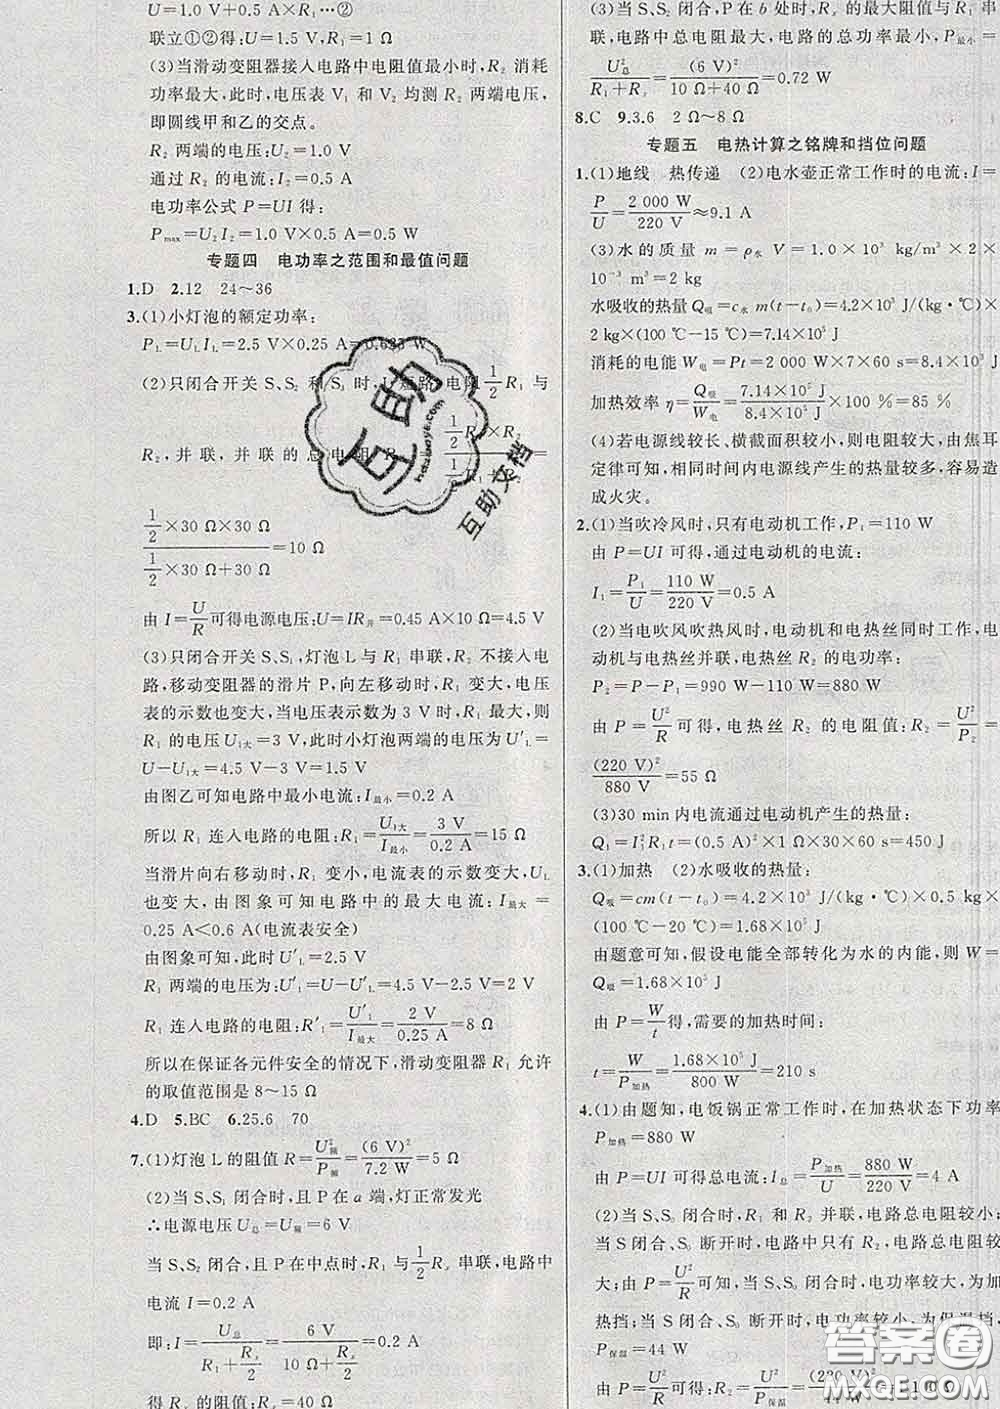 U=1.0 V+0.5 A×R₁…②
联立①②得:U=1.5 V,R₁=1 Ω
(3)当滑动变阻器接入电路中电阻值最小时,R₂ 消耗
功率最大,此时,电压表 V₁ 和 V₂ 均测 R₂ 两端电压,
即圆线甲和乙的交点。
R₂ 两端的电压:U₂=1.0 V
通过 R₂ 的电流:I₂=0.5 A
电功率公式 P=UI 得:
Pmax=U₂I₂=1.0 V×0.5 A=0.5 W
专题四 电功率之范围和最值问题
1.D 2.12 24~36
3.(1)小灯泡的额定功率:
P_L=U_L I_L=2.5 V×0.25 A=0.635 W
(2)只闭合开关 S、S₂ 和 S₁ 时, 电阻 1/2 R₁ 与
R₂,并联,并联的总电阻
(1/2×30 Ω×30 Ω)/(1/2×30 Ω+30 Ω)=10 Ω
由 I=U/R 可得电源电压:U=IR并=0.45 A×10 Ω=4.5 V
(3)只闭合开关 S、S₁,灯泡 L 与 R₁ 串联,R₂ 不接入电
路,移动变阻器的滑片 P,向左移动时,R₁ 变大,电压
表的示数也变大,当电压表示数为 3 V 时,R₁ 最大,则
R₁ 的电压 U₁大=3 V,此时小灯泡两端的电压为 U′_L=
U−U₁大=4.5 V−3 V=1.5 V
由图乙可知电路中最小电流:I最小=0.2 A
所以 R₁ 连入电路的电阻:R₁=U₁大/I最小=3 V/0.2 A=15 Ω
当滑片向右移动时,R₁ 变小,电流表的示数变大,U_L
也变大,由图象可知电路中的最大电流:I最大=
0.25 A<0.6 A(电流表安全)
由图象可知,此时 U′_L=2.5 V
R₁ 两端的电压为:U′₁=U−U′_L=4.5 V−2.5 V=2 V
R₁ 连入电路的电阻:R′₁=U′₁/I最大=2 V/0.25 A=8 Ω
所以在保证各元件安全的情况下,滑动变阻器 R₁ 允许
的取值范围是 8~15 Ω
4.D 5.BC 6.25.6 70
7.(1)灯泡 L 的阻值 R=U²额/P额=(6 V)²/7.2 W=5 Ω
(2)当 S、S₁ 闭合时,且 P 在 a 端,灯正常发光
∴电源电压 U总=U额=6 V
当 S、S₂ 闭合,且 P 在中点时,R₁ 与 1/2 Rₓ 串联,电路中
电流 I=0.2 A
即:I=U总/(R₁+Rₓ/2)=6 V/(10 Ω+Rₓ/2)=0.2 A
得 Rₓ 的阻值:Rₓ=40 Ω
(3)当 S、S₂ 闭合,P 在 b 处时,Rₓ 的最大阻值与 R₁ 串
联,电路中总电阻最大,电路的总功率最小,P最小=
U²总/(R₁+Rₓ)=(6 V)²/(10 Ω+40 Ω)=0.72 W
8.C 9.3.6 2 Ω~8 Ω
专题五 电热计算之铭牌和挡位问题
1.(1)地线 热传递 (2)电水壶正常工作时的电流:I=
P/U=2 000 W/220 V≈9.1 A
(3)水的质量 m=ρ水 V=1.0×10³ kg/m³×2×
10⁻³ m³=2 kg
水吸收的热量 Q吸=c水 m(t−t₀)=4.2×10³ J/(kg·℃)×
2 kg×(100 ℃−15 ℃)=7.14×10⁵ J
消耗的电能 W电=Pt=2 000 W×7×60 s=8.4×10⁵
加热效率 η=Q吸/W电=7.14×10⁵ J/8.4×10⁵ J×100 %=85 %
(4)若电源线较长、横截面积较小,则电阻较大,由焦耳
定律可知,相同时间内电源线产生的热量较多,容易造
成火灾。
2.(1)当吹冷风时,只有电动机工作,P₁=110 W
由 P=UI 可得,通过电动机的电流:
I₁=P₁/U=110 W/220 V=0.5 A
(2)当电吹风吹热风时,电动机和电热丝同时工作,电
动机与电热丝并联,电热丝 R₂ 的电功率:
P₂=P−P₁=990 W−110 W=880 W
由 P=U²/R 可得,电热丝 R₂ 的电阻值:R₂=U²/P₂=
(220 V)²/880 V=55 Ω
(3)30 min 内电流通过电动机产生的热量:
Q₁=I²₁R₁t=(0.5 A)²×1 Ω×30×60 s=450 J
3.(1)加热 (2)水吸收的热量:
Q吸=cm(t−t₀)=4.2×10³ J/(kg·℃)×0.5 kg×
(100 ℃−20 ℃)=1.68×10⁵ J
由题意可知,假设电能全部转化为水的内能,则 W=
Q吸=1.68×10⁵ J
由 P=W/t 得,需要的加热时间:
t=W/P加热=1.68×10⁵ J/800 W=210 s
4.(1)由题知,电饭锅正常工作时,在加热状态下功率
P加热=880 W
由 P=UI 可得总电流:I总=P加热/U=880 W/220 V=4 A
(2)当 S、S₀ 闭合时,R₁ 和 R₂ 并联,电路总电阻较小;
当 S 闭合、S₀ 断开时,电路中只有 R₂,电路总电阻较
大;由 P=U²/R 可知,当 S、S₀ 闭合时,电功率较大,为加
热挡;当 S 闭合、S₀ 断开时,电功率较小,为保温挡,
P保温=44 W
由 P=U²/R 可得:R₂=U²/P保温=(220 V)²/44 W=1100 Ω
互助
hdzuoye.com
互助文档
答案圈
MXQE.COM